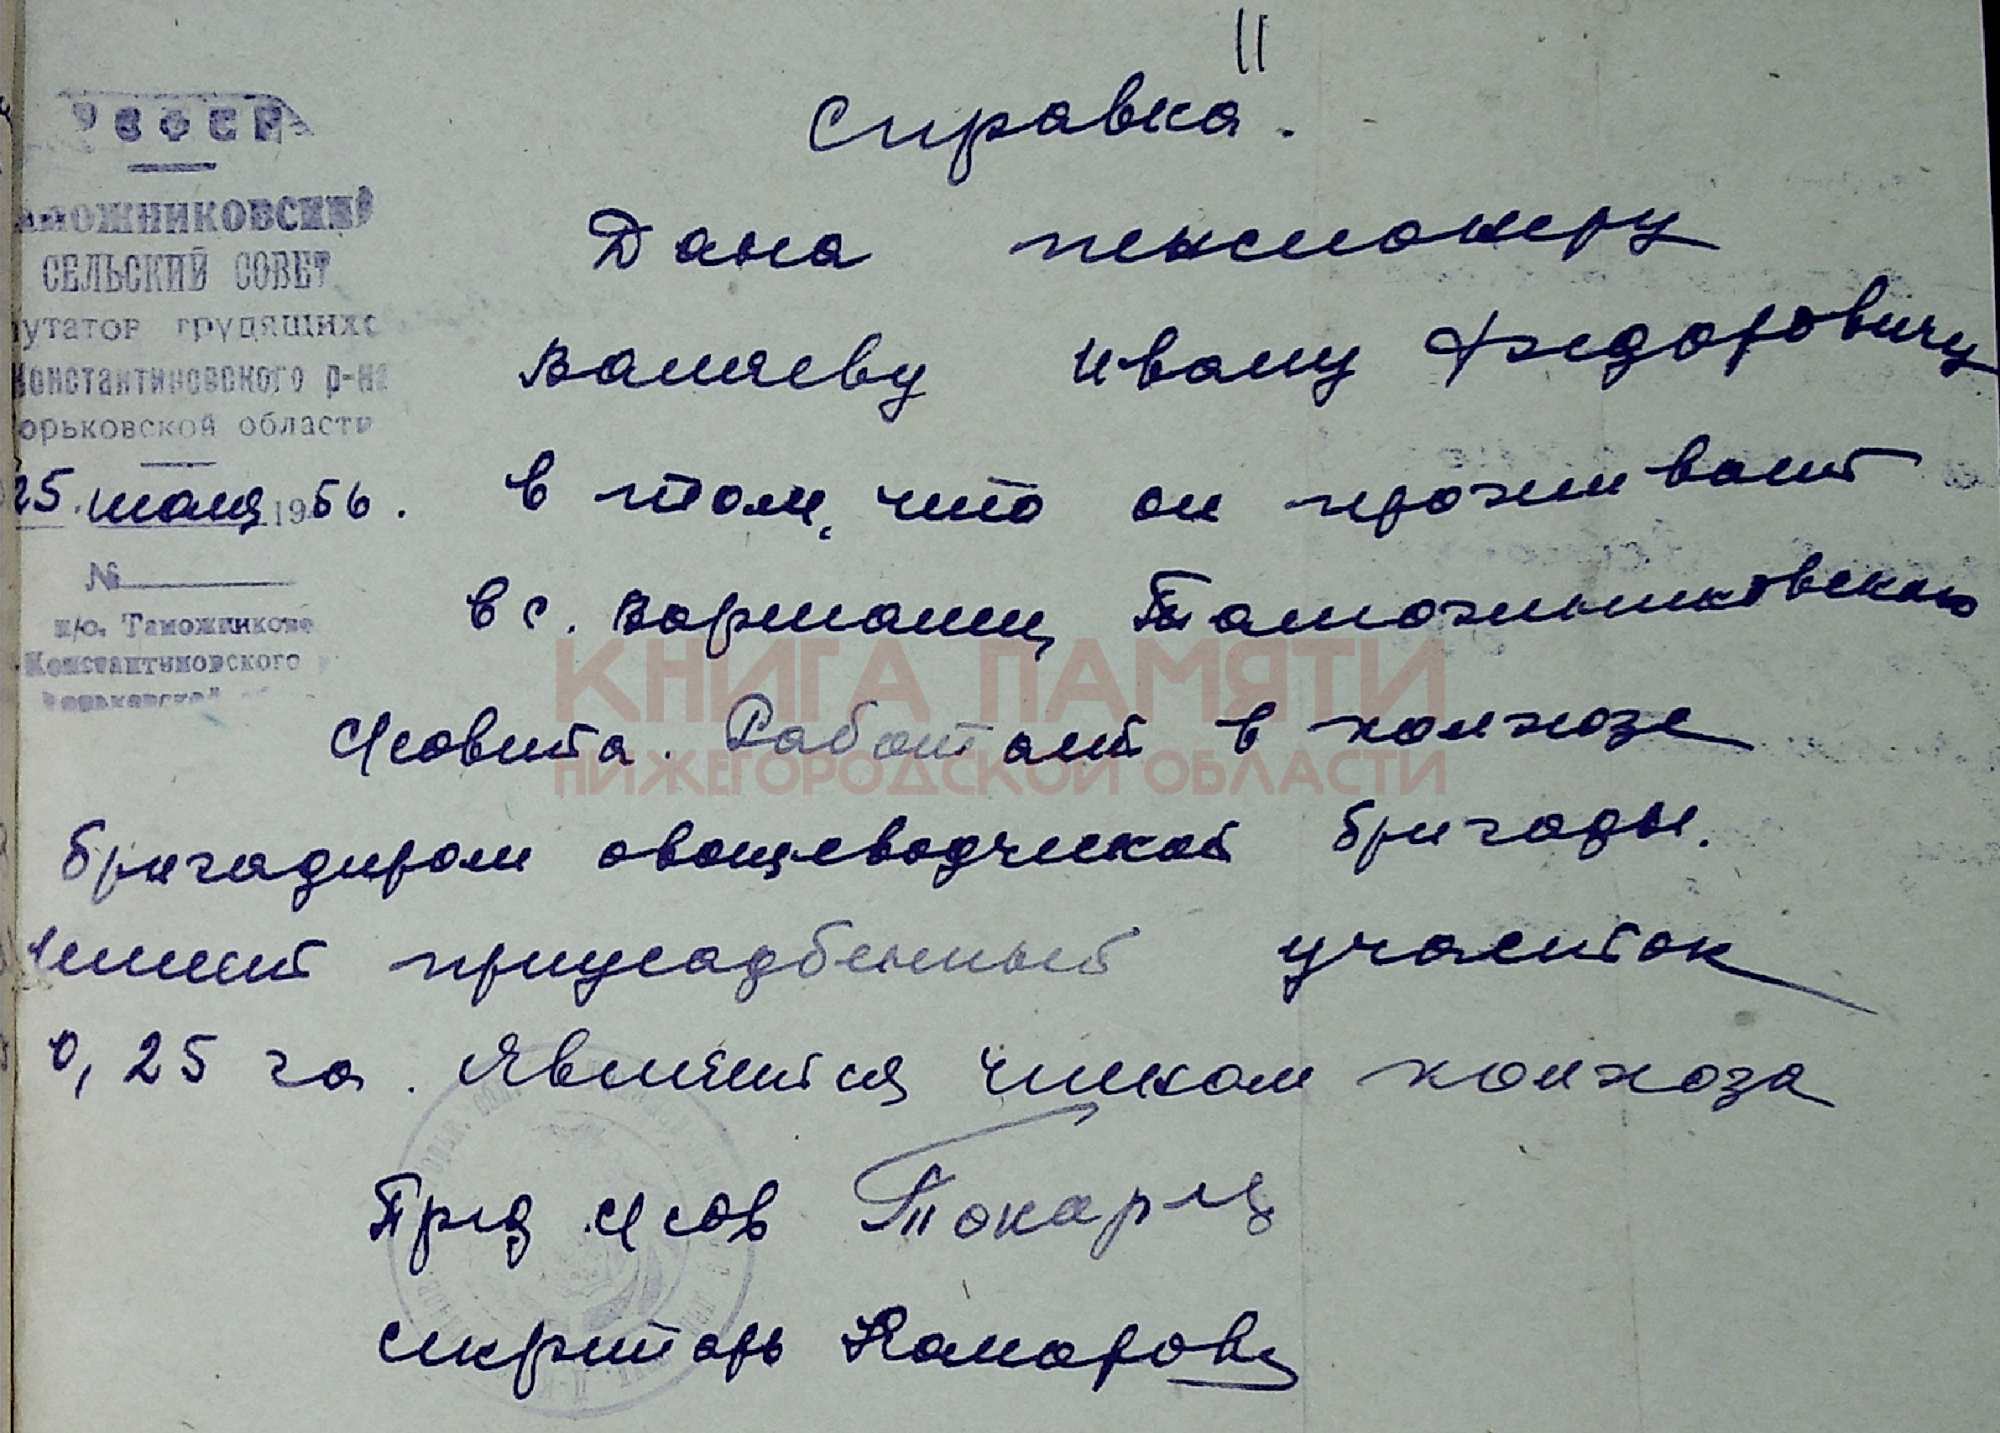 11
Справка.
РСФСР
АМОЖНИКОВСКИЙ
СЕЛЬСКИЙ СОВЕТ
путатов трудящихс
Константиновского р-на
орьковской области
25. июля 1956.
№
п/о. Таможниково
Константиновского р
Горьковской
Дана пенсионеру
Ваняеву Ивану Федоровичу
в том, что он проживает
в с. Вармалеи, Таможниковского
с/совета. Работает в колхозе
бригадиром овощеводческой бригады.
Имеет приусадебный участок
0,25 га. Является членом колхоза
Пред с/сов Токарец
секретарь Комарова
КНИГА ПАМЯТИ
НИЖЕГОРОДСКОЙ ОБЛАСТИ